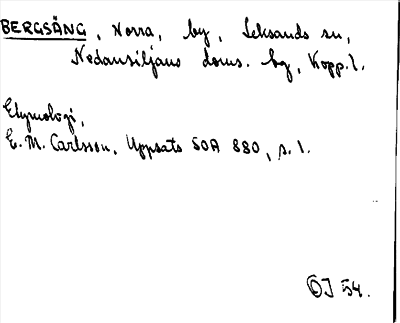 BERGSÄNG, Norra, by, Leksands sn,
Nedansiljans doms. hg, Kopp. l.
Etymologi,
E. M. Carlsson, Uppsats SOA 880, s. 1.
OJ 54.